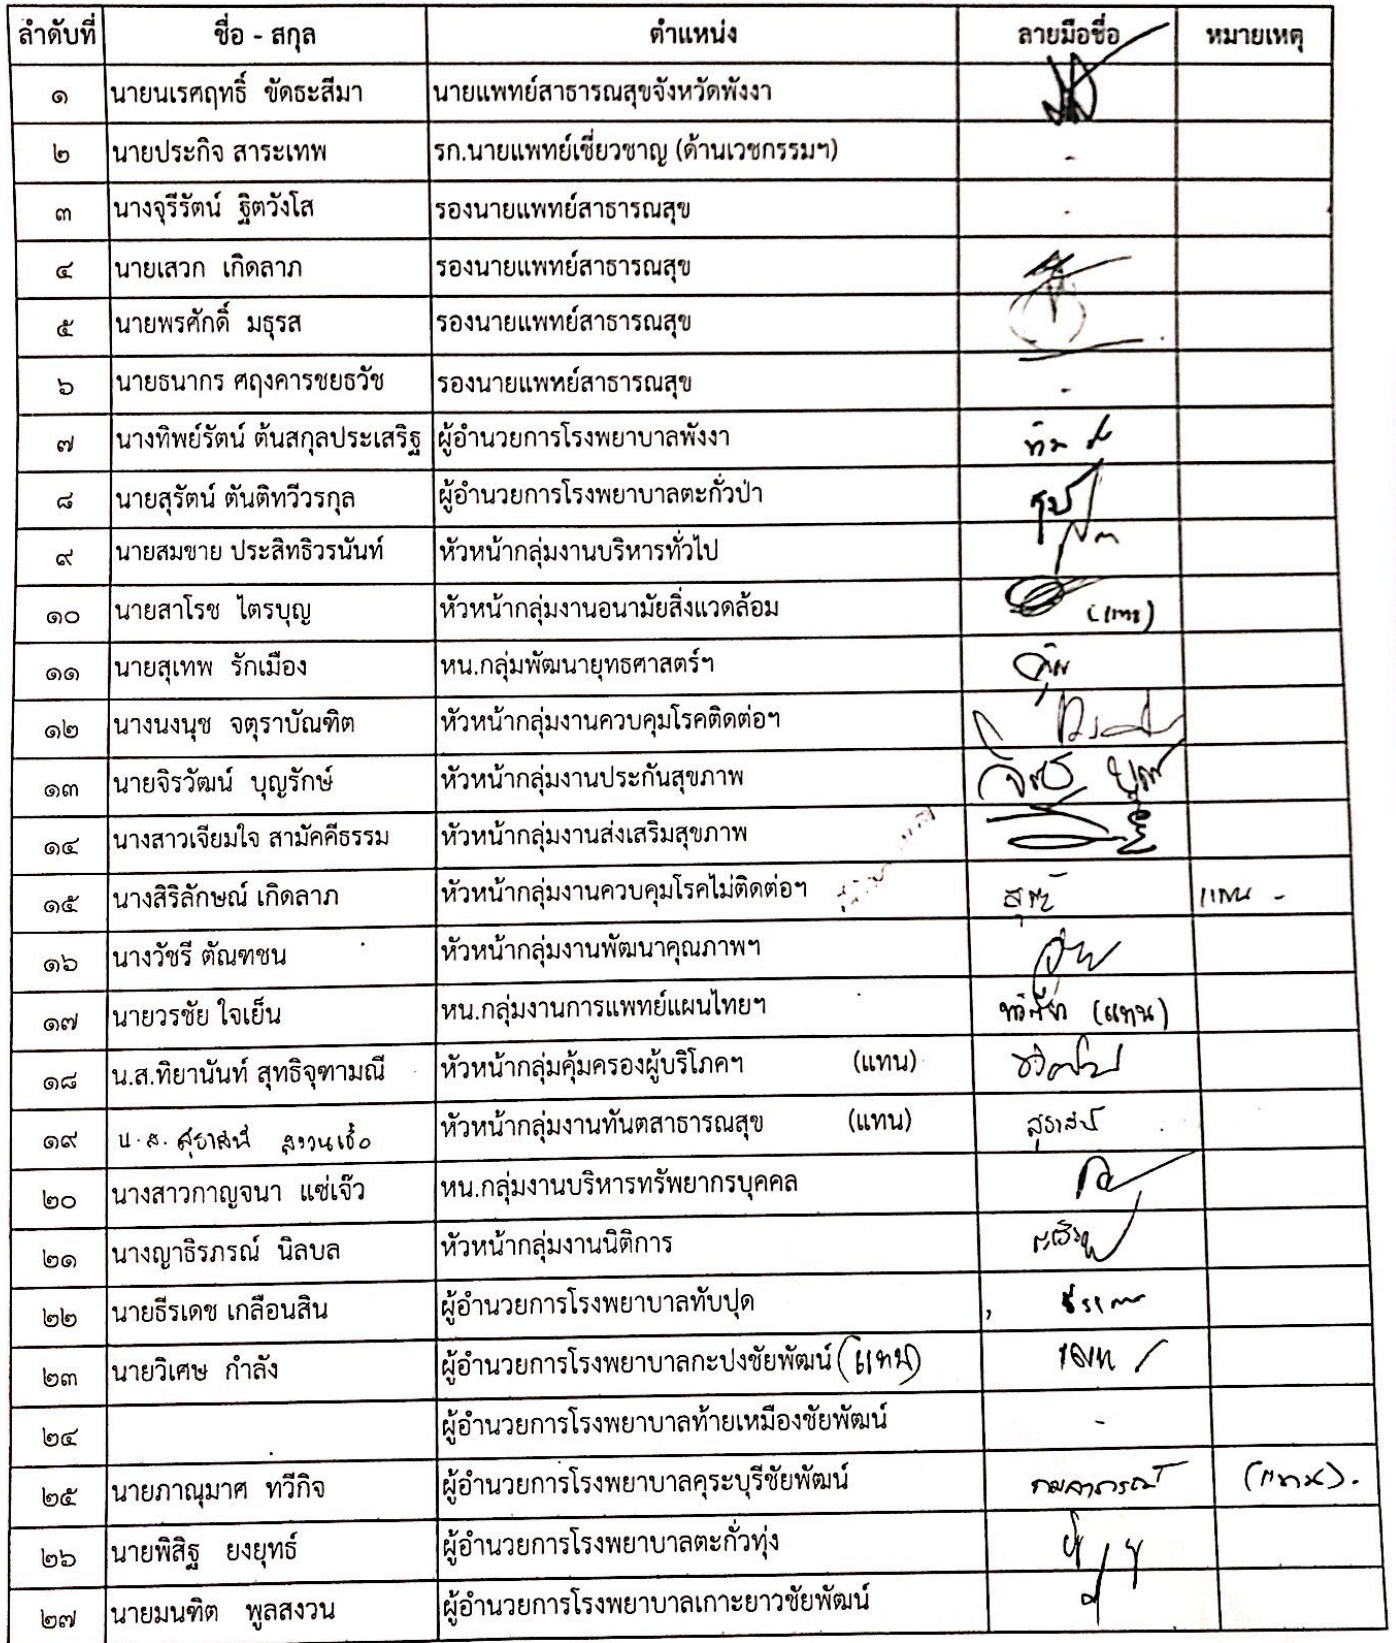 ลำดับที่ ชื่อ - สกุล ตำแหน่ง ลายมือชื่อ หมายเหตุ
๑ นายนเรศฤทธิ์ ขัดธะสีมา นายแพทย์สาธารณสุขจังหวัดพังงา
๒ นายประกิจ สาระเทพ รก.นายแพทย์เชี่ยวชาญ (ด้านเวชกรรมฯ) -
๓ นางจุรีรัตน์ ฐิตวังโส รองนายแพทย์สาธารณสุข -
๔ นายเสวก เกิดลาภ รองนายแพทย์สาธารณสุข
๕ นายพรศักดิ์ มธุรส รองนายแพทย์สาธารณสุข
๖ นายธนากร ศฤงคารชยธวัช รองนายแพทย์สาธารณสุข -
๗ นางทิพย์รัตน์ ต้นสกุลประเสริฐ ผู้อำนวยการโรงพยาบาลพังงา
๘ นายสุรัตน์ ตันติทวีวรกุล ผู้อำนวยการโรงพยาบาลตะกั่วป่า
๙ นายสมชาย ประสิทธิวรนันท์ หัวหน้ากลุ่มงานบริหารทั่วไป
๑๐ นายสาโรช ไตรบุญ หัวหน้ากลุ่มงานอนามัยสิ่งแวดล้อม (แทน)
๑๑ นายสุเทพ รักเมือง หน.กลุ่มพัฒนายุทธศาสตร์ฯ
๑๒ นางนงนุช จตุราบัณฑิต หัวหน้ากลุ่มงานควบคุมโรคติดต่อฯ
๑๓ นายจิรวัฒน์ บุญรักษ์ หัวหน้ากลุ่มงานประกันสุขภาพ
๑๔ นางสาวเจียมใจ สามัคคีธรรม หัวหน้ากลุ่มงานส่งเสริมสุขภาพ
๑๕ นางสิริลักษณ์ เกิดลาภ หัวหน้ากลุ่มงานควบคุมโรคไม่ติดต่อฯ แทน -
๑๖ นางวัชรี ตัณฑชน หัวหน้ากลุ่มงานพัฒนาคุณภาพฯ
๑๗ นายวรชัย ใจเย็น หน.กลุ่มงานการแพทย์แผนไทยฯ (แทน)
๑๘ น.ส.ทิยานันท์ สุทธิจุฑามณี หัวหน้ากลุ่มคุ้มครองผู้บริโภคฯ (แทน)
๑๙ น.ส. หัวหน้ากลุ่มงานทันตสาธารณสุข (แทน)
๒๐ นางสาวกาญจนา แซ่เจ๊ว หน.กลุ่มงานบริหารทรัพยากรบุคคล
๒๑ นางญาธิรภรณ์ นิลบล หัวหน้ากลุ่มงานนิติการ
๒๒ นายธีรเดช เกลือนสิน ผู้อำนวยการโรงพยาบาลทับปุด
๒๓ นายวิเศษ กำลัง ผู้อำนวยการโรงพยาบาลกะปงชัยพัฒน์ (แทน)
๒๔ ผู้อำนวยการโรงพยาบาลท้ายเหมืองชัยพัฒน์ -
๒๕ นายภาณุมาศ ทวีกิจ ผู้อำนวยการโรงพยาบาลคุระบุรีชัยพัฒน์ (แทน).
๒๖ นายพิสิฐ ยงยุทธ์ ผู้อำนวยการโรงพยาบาลตะกั่วทุ่ง
๒๗ นายมนฑิต พูลสงวน ผู้อำนวยการโรงพยาบาลเกาะยาวชัยพัฒน์